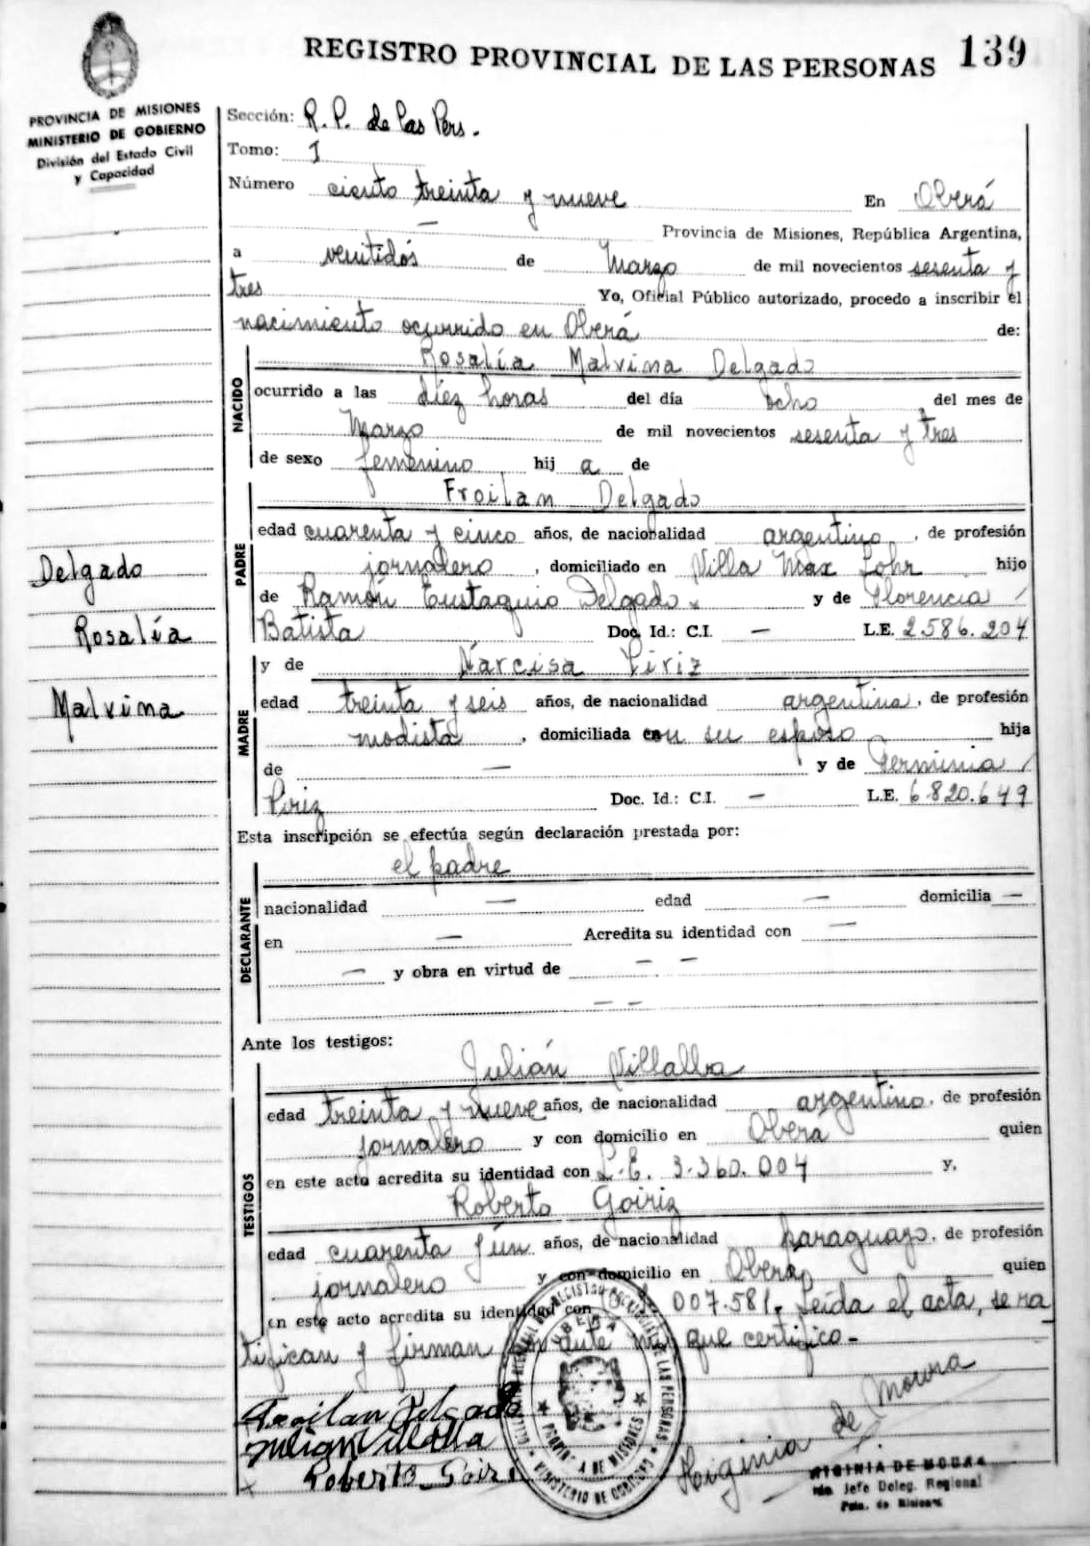 REGISTRO PROVINCIAL DE LAS PERSONAS 139
PROVINCIA DE MISIONES
MINISTERIO DE GOBIERNO
División del Estado Civil
y Capacidad
Sección: R. P. de las Pers.
Tomo: I
Número ciento treinta y nueve En Oberá
— Provincia de Misiones, República Argentina,
a veintidós de Marzo de mil novecientos sesenta y
tres Yo, Oficial Público autorizado, procedo a inscribir el
nacimiento ocurrido en Oberá de:
NACIDO
Rosalía Malvina Delgado
ocurrido a las diéz horas del día ocho del mes de
Marzo de mil novecientos sesenta y tres
de sexo femenino hij a de
PADRE
Froilan Delgado
edad cuarenta y cinco años, de nacionalidad argentino, de profesión
jornalero, domiciliado en Villa Max Lohr hijo
de Ramón Eustaquio Delgado y de Florencia
Batista Doc. Id.: C.I. — L.E. 2.586.204
Delgado
Rosalía
Malvina
MADRE
y de Narcisa Piriz
edad treinta y seis años, de nacionalidad argentina, de profesión
modista, domiciliada con su esposo hija
de — y de Herminia
Piriz Doc. Id.: C.I. — L.E. 6.820.649
Esta inscripción se efectúa según declaración prestada por:
DECLARANTE
el padre
nacionalidad — edad — domicilia —
en — Acredita su identidad con —
— y obra en virtud de — —
— —
Ante los testigos:
TESTIGOS
Julián Villalba
edad treinta y nueve años, de nacionalidad argentino, de profesión
jornalero y con domicilio en Oberá quien
en este acto acredita su identidad con L.E. 3.360.004 y,
Roberto Goiriz
edad cuarenta y ún años, de nacionalidad paraguayo, de profesión
jornalero y con domicilio en Oberá quien
en este acto acredita su identidad con 007.581. Leída el acta, se ra
tifican y firman por ante mí que certifico.-
Froilan Delgado
Julian Villalba
Roberto Goiriz
Higinia de Moura
HIGINIA DE MOURA
Jefe Deleg. Regional
OBERA
PROVINCIA DE MISIONES
MINISTERIO DE GOBIERNO